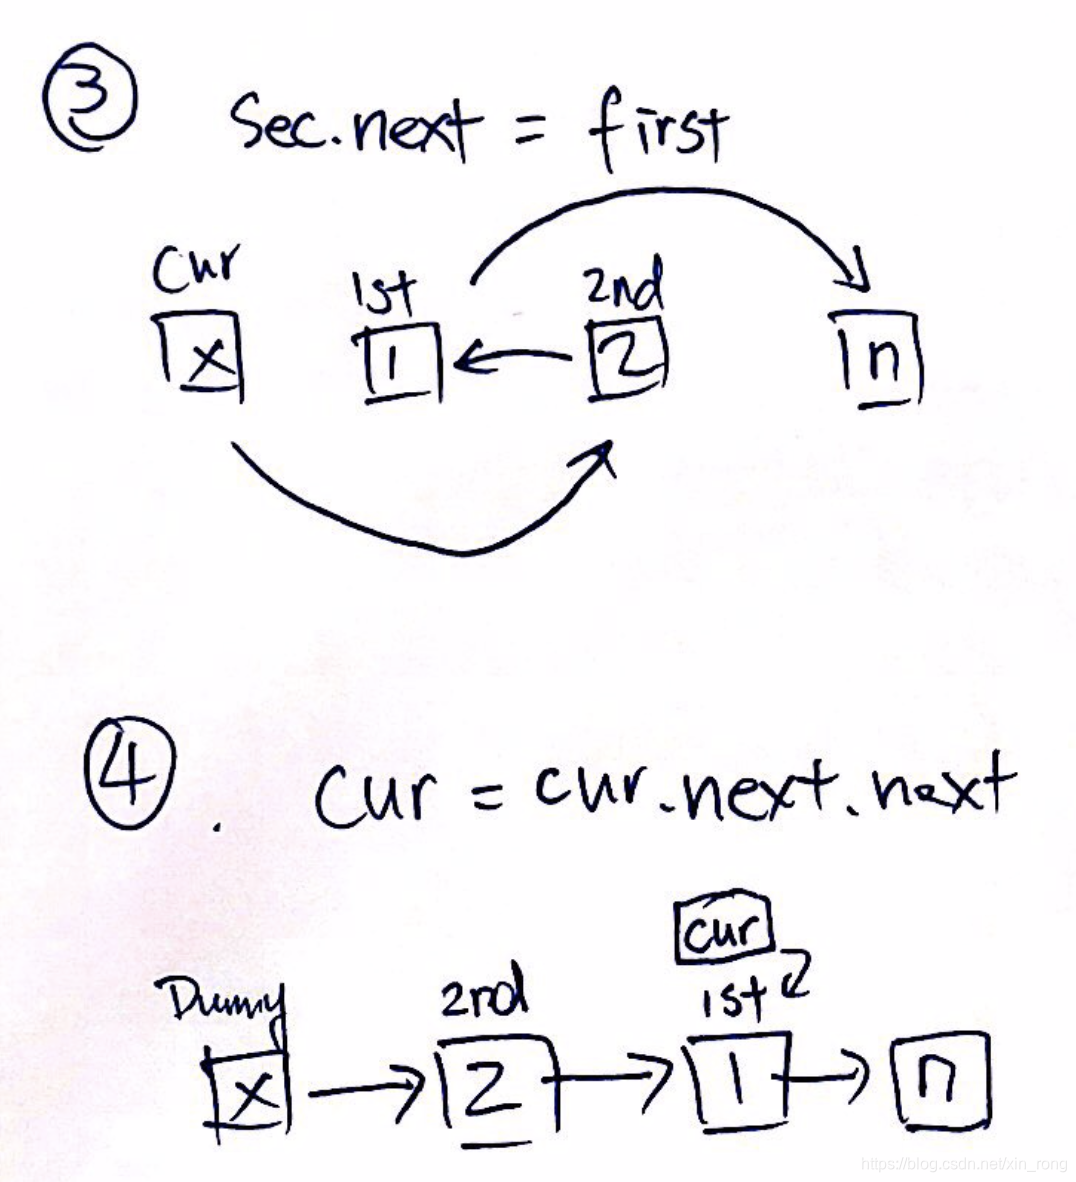 ③ Sec.next = first
Cur 1st 2nd
x 1 2 n
④. Cur = cur.next.next
cur
Dumy 2nd 1st
x 2 1 n
https://blog.csdn.net/xin_rong